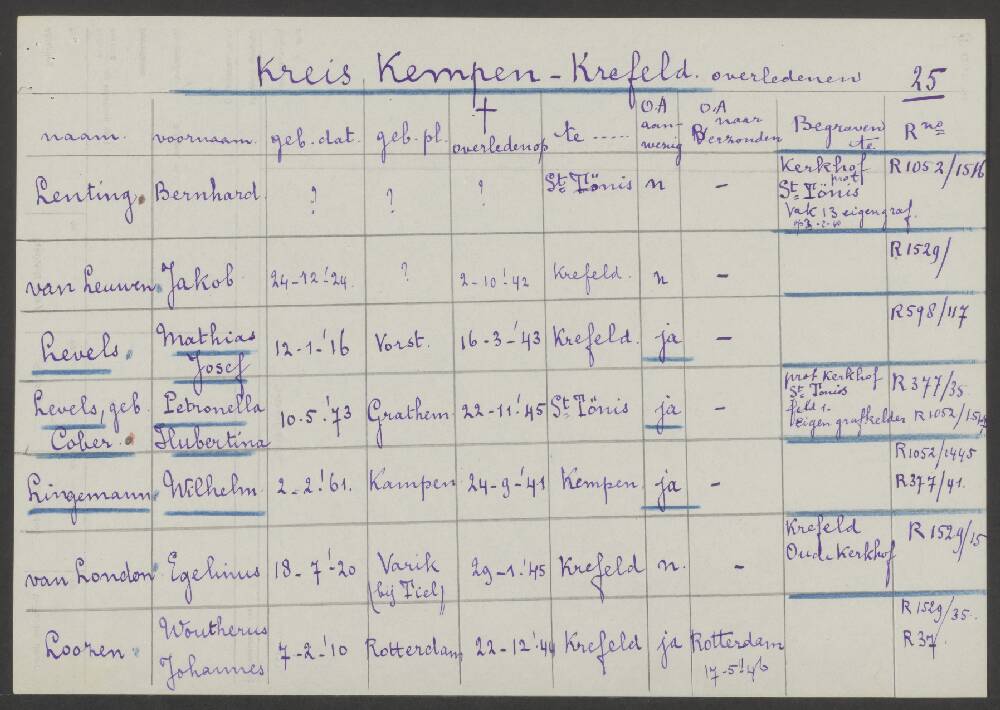 Kreis Kempen - Krefeld. overledenen 25
naam. voornaam. geb. dat. geb. pl. † overleden op te ..... O.A aanwezig O.A naar verzonden Begraven te. R no
Lenting. Bernhard ? ? ? St. Tönis n - Kerkhof prot St. Tönis Vak 13 eigen graf. R1052/1516
van Leuwen. Jakob 24-12-'24. ? 2-10-'42 Krefeld. n - R1529/
Levels. Mathias Josef 12-1-'16 Vorst. 16-3-'43 Krefeld. ja - R598/117
Levels, geb. Cober. Petronella Hubertina 10-5-'73 Grathem 22-11-'45 St. Tönis ja - prot Kerkhof St. Tönis feld 1. eigen grafkelder R377/35. R1052/
Lingemann. Wilhelm 2-2-'61. Kampen 24-9-'41 Kempen ja - R1052/1445 R377/41.
van London. Egelinus 18-7-'20 Varik (bij Tiel) 29-1-'45 Krefeld n. - Krefeld Oude Kerkhof R1529/15
Loozen. Woutherus Johannes 7-2-'10 Rotterdam 22-12-'44 Krefeld ja Rotterdam 17-5-'46 R1529/35. R37.